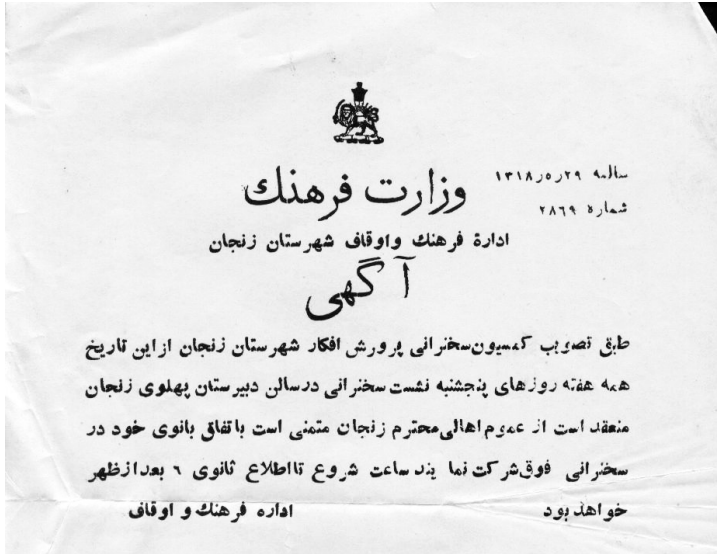 وزارت فرهنك
سالمه ۲۹ر۵ر۱۳۱۸
شماره ۲۸۶۹
ادارۀ فرهنك واوقاف شهرستان زنجان
آگهی
طبق تصویب کمسیون سخنرانی پرورش افکار شهرستان زنجان از این تاریخ
همه هفته روزهای پنجشنبه نشست سخنرانی در سالن دبیرستان پهلوی زنجان
منعقد است از عموم اهالی محترم زنجان متمنی است با تفاق بانوی خود در
سخنرانی فوق شرکت نما یند ساعت شروع تا اطلاع ثانوی ۶ بعد از ظهر
خواهد بود
اداره فرهنك و اوقاف